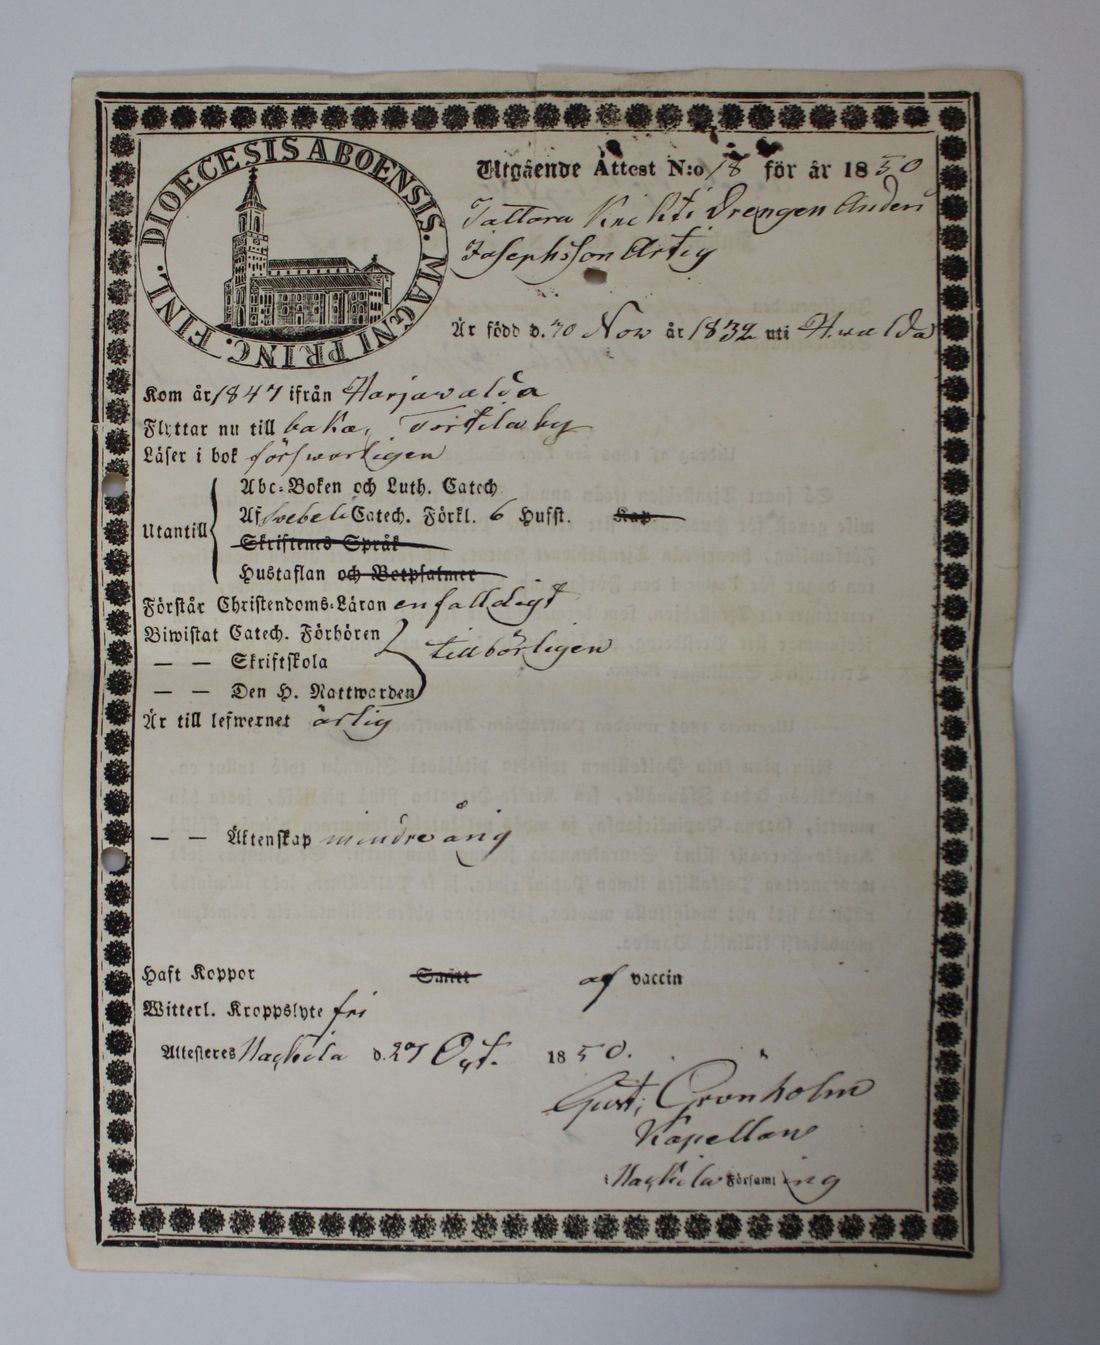 DIOECESIS ABOENSIS. MAGNI PRINC. FINL.
Utgående Attest N:o 18 för år 1850
Tattara Knekti Drengen Anders
Josephsson Artig
Är född d. 30 Nov år 1832 uti Hwalda
Kom år 1847 ifrån Harjawalda
Flyttar nu till baka, Torttila by
Läser i bok förswarligen
Utantill
Abc-Boken och Luth. Catech
Af Svebeli Catech. Förkl. 6 Hufst. Kap
Skriftenes Språk
Hustaflan och Botpsalmer
Förstår Christendoms-Läran enfalldigt
Biwistat Catech. Förhören
— — Skriftskola tillbörligen
— — Den H. Nattwarden
Är till lefwernet ärlig
— — Äktenskap mindreårig
Haft Koppor Smitt af vaccin
Witterl. Kroppslyte fri
Attesteras Nackila d. 27 Oct. 1850.
Gust. Grönholm
Kapellan
i Nackila Församling